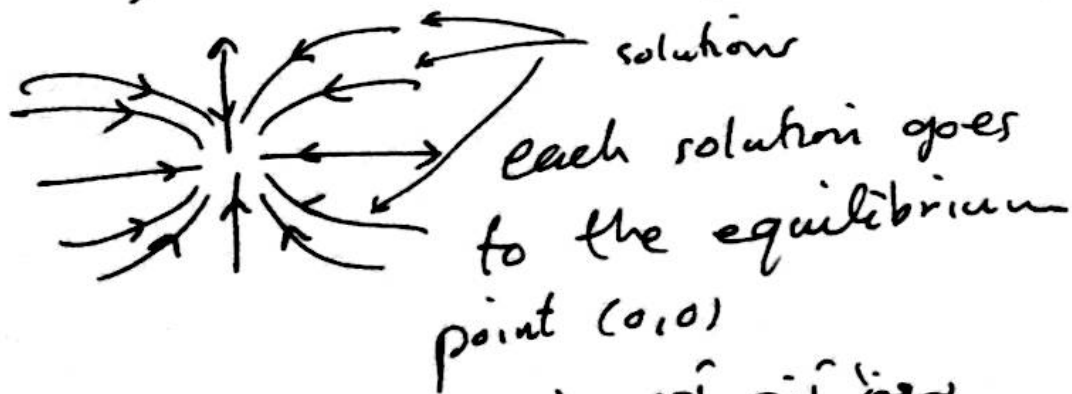 solutions
each solution goes
to the equilibrium
point (0,0)